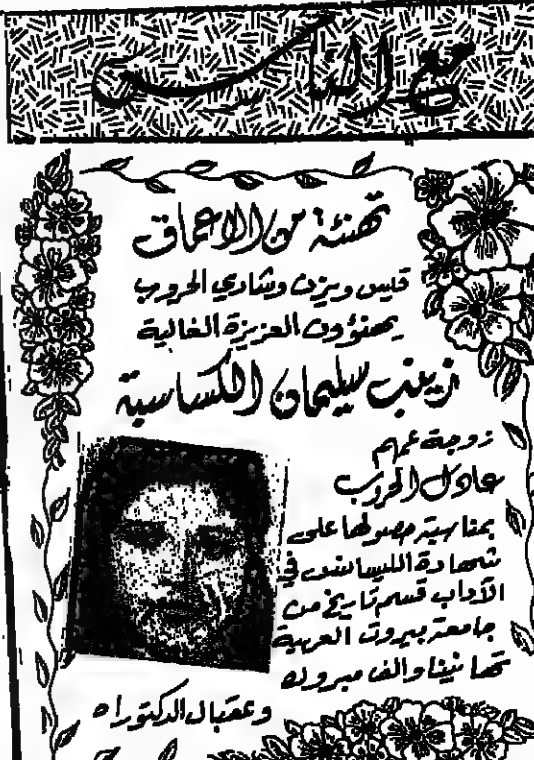 مع الناس
تهنئة من الاعماق
قيس ويزن وشادي الحروب
يهنؤون العزيزة الغالية
زينب سليمان الكساسبة
زوجة عمهم
عادل الحروب
بمناسبة حصولها على
شهادة الليسانس في
الآداب قسم تاريخ من
جامعة بيروت العربية
تهانينا والف مبروك
وعقبال الدكتوراه